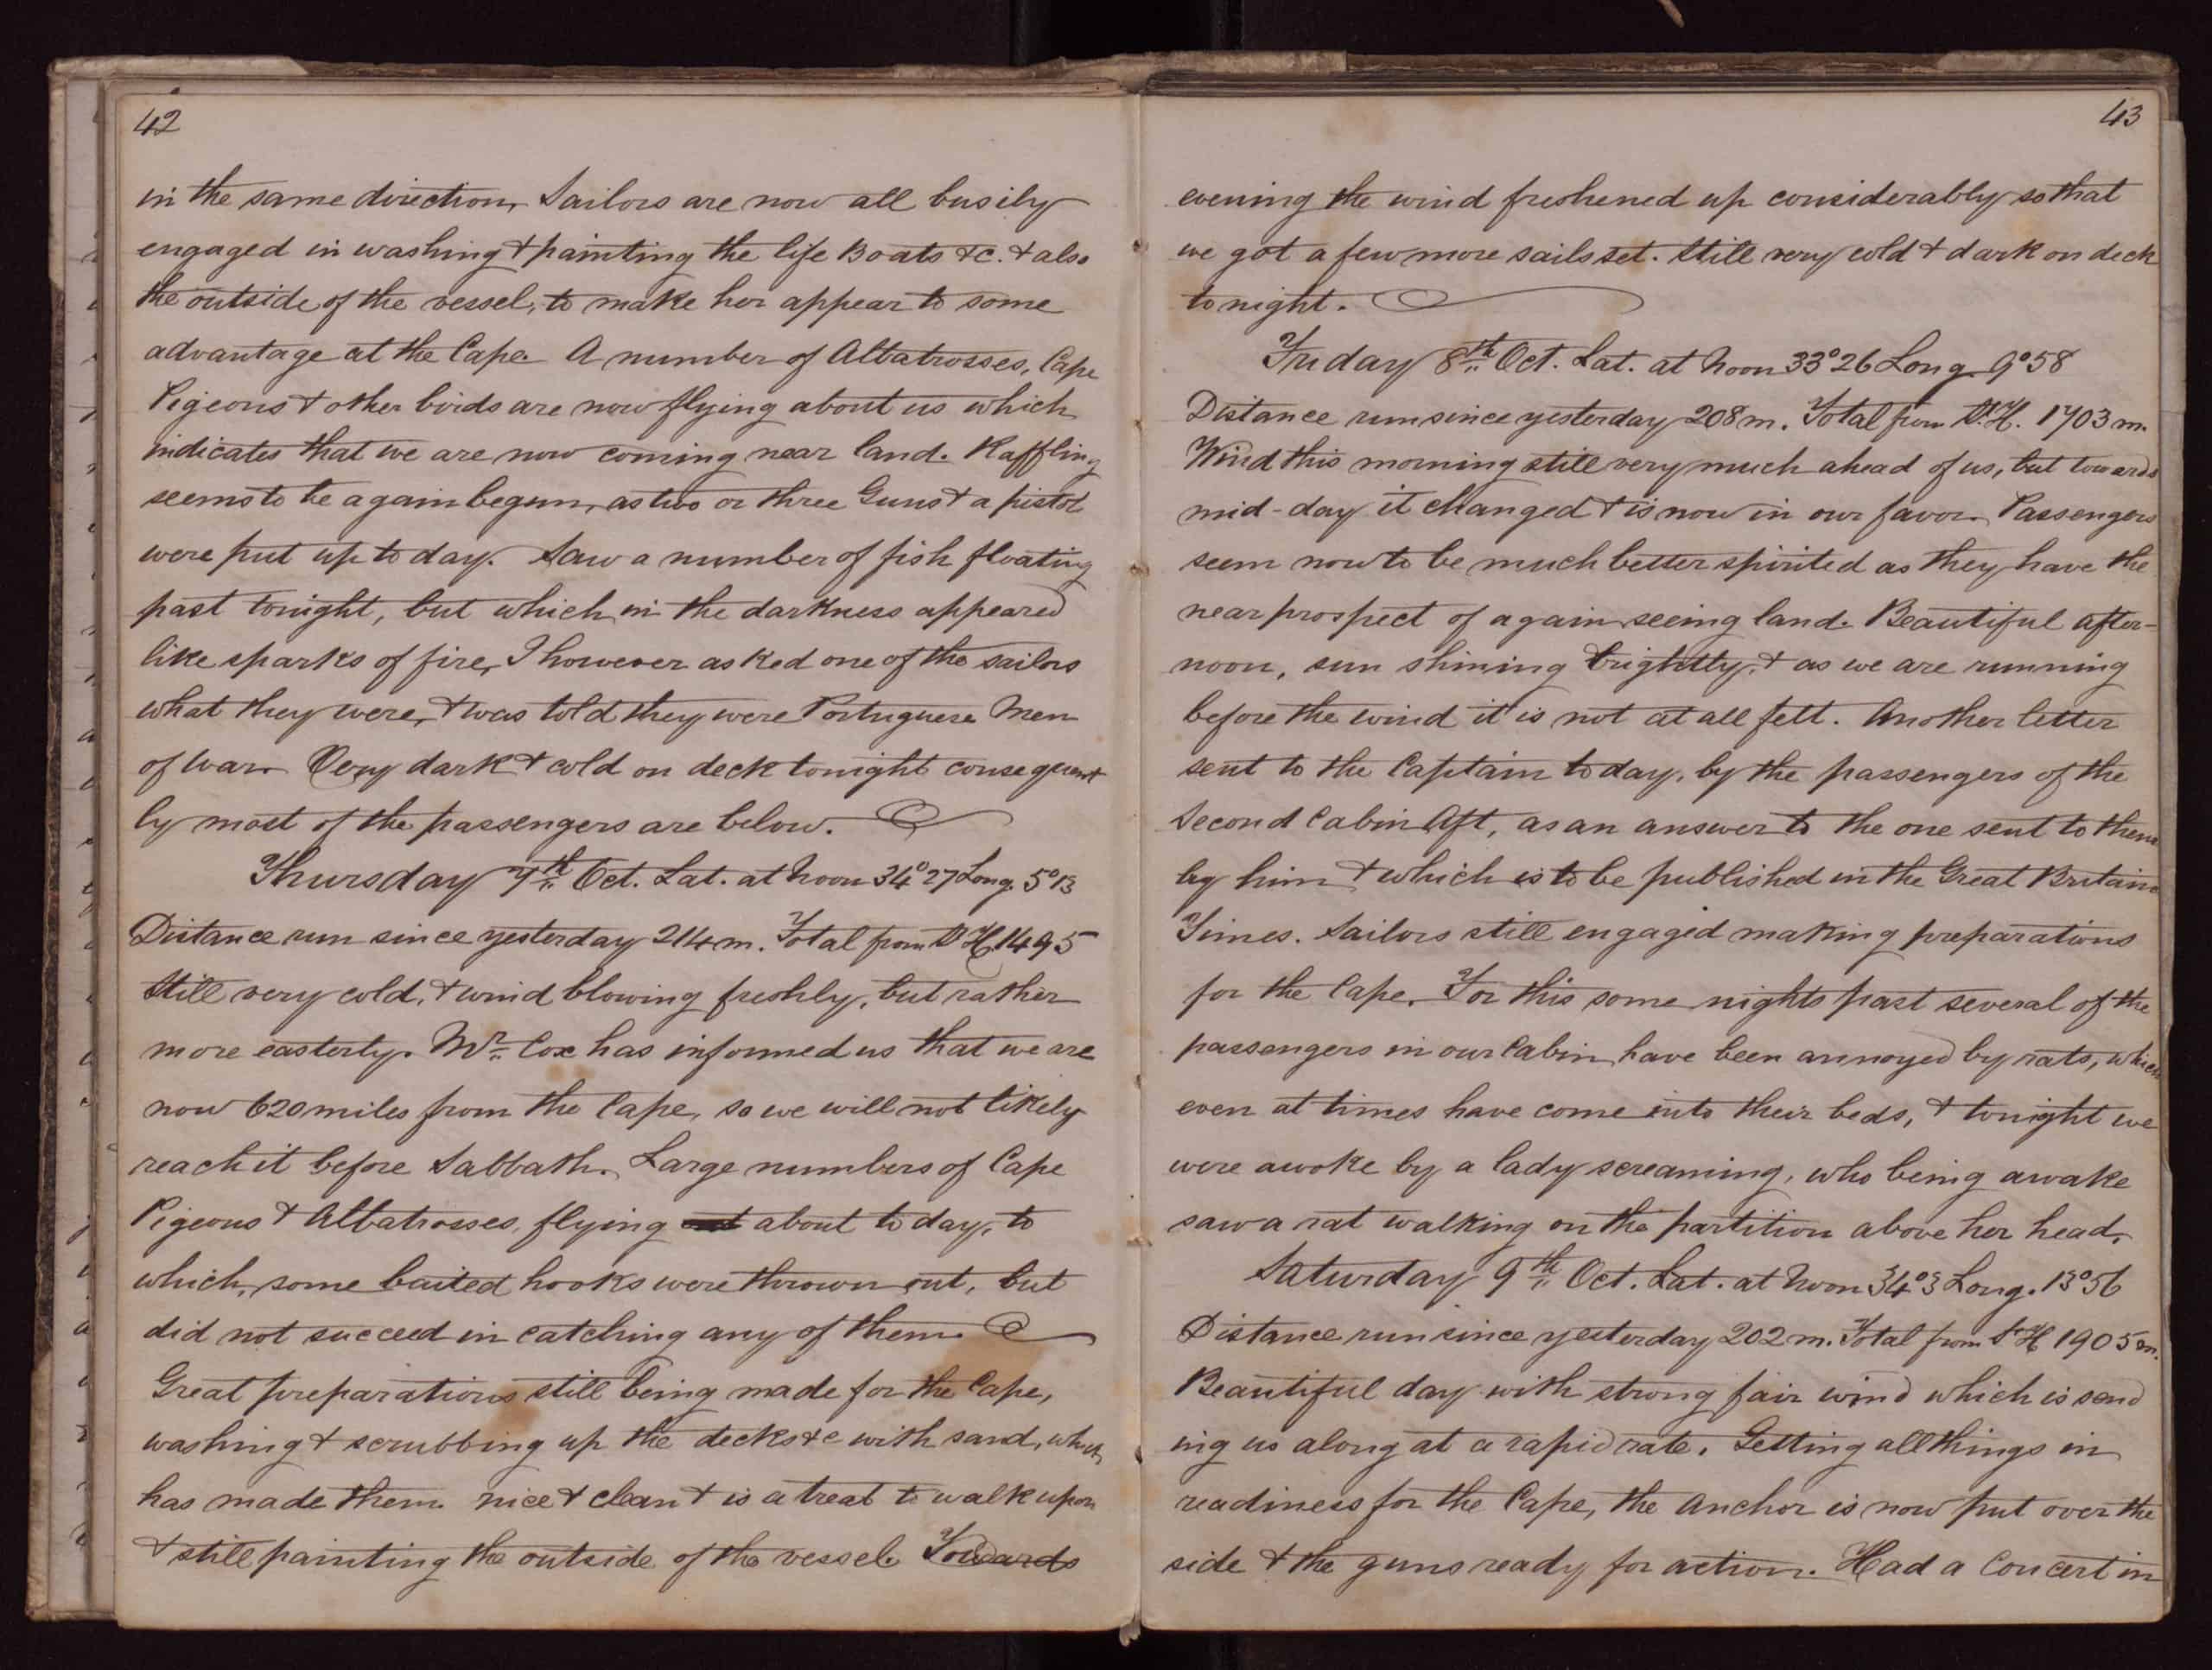 42
in the same direction, Sailors are now all busily
engaged in washing & painting the life Boats &c. & also
the outside of the vessel, to make her appear to some
advantage at the Cape. A number of Albatrosses, Cape
Pigeons & other birds are now flying about us which
indicates that we are now coming near land. Raffling
seems to be again begun, as two or three Guns & a pistol
were put up to day. Saw a number of fish floating
past tonight, but which in the darkness appeared
like sparks of fire, I however asked one of the sailors
what they were, & was told they were Portuguese Men
of War. Very dark & cold on deck tonight consequent
ly most of the passengers are below.
Thursday 7th Oct. Lat. at Noon 34°27 Long. 5°13
Distance run since yesterday 214 m. Total from St H. 1495
Still very cold, & wind blowing freshly, but rather
more easterly. Mr Cox has informed us that we are
now 620 miles from the Cape, so we will not likely
reach it before Sabbath. Large numbers of Cape
Pigeons & Albatrosses, flying about to day, to
which, some baited hooks were thrown out, but
did not succeed in catching any of them.
Great preparations still being made for the Cape,
washing & scrubbing up the decks &c with sand, which
has made them nice & clean & is a treat to walk upon
& still painting the outside of the vessel. Towards
43
evening the wind freshened up considerably so that
we got a few more sails set. Still very cold & dark on deck
tonight.
Friday 8th Oct. Lat. at Noon 33°26 Long. 9°58
Distance run since yesterday 208 m. Total from St. H. 1703 m.
Wind this morning still very much ahead of us, but towards
mid-day it changed & is now in our favor. Passengers
seem now to be much better spirited as they have the
near prospect of again seeing land. Beautiful after-
noon, sun shining brightly, & as we are running
before the wind it is not at all felt. Another letter
sent to the Captain to day, by the passengers of the
Second Cabin Aft, as an answer to the one sent to them
by him & which is to be published in the Great Britain
Times. Sailors still engaged making preparations
for the Cape. For this some nights past several of the
passengers in our Cabin have been annoyed by rats, which
even at times have come into their beds, & tonight we
were awoke by a lady screaming, who being awake
saw a rat walking on the partition above her head.
Saturday 9th Oct. Lat. at Noon 34°3 Long. 13°56
Distance run since yesterday 202 m. Total from St H 1905 m.
Beautiful day with strong fair wind which is send
ing us along at a rapid rate. Getting all things in
readiness for the Cape, the Anchor is now put over the
side & the guns ready for action. Had a Concert in